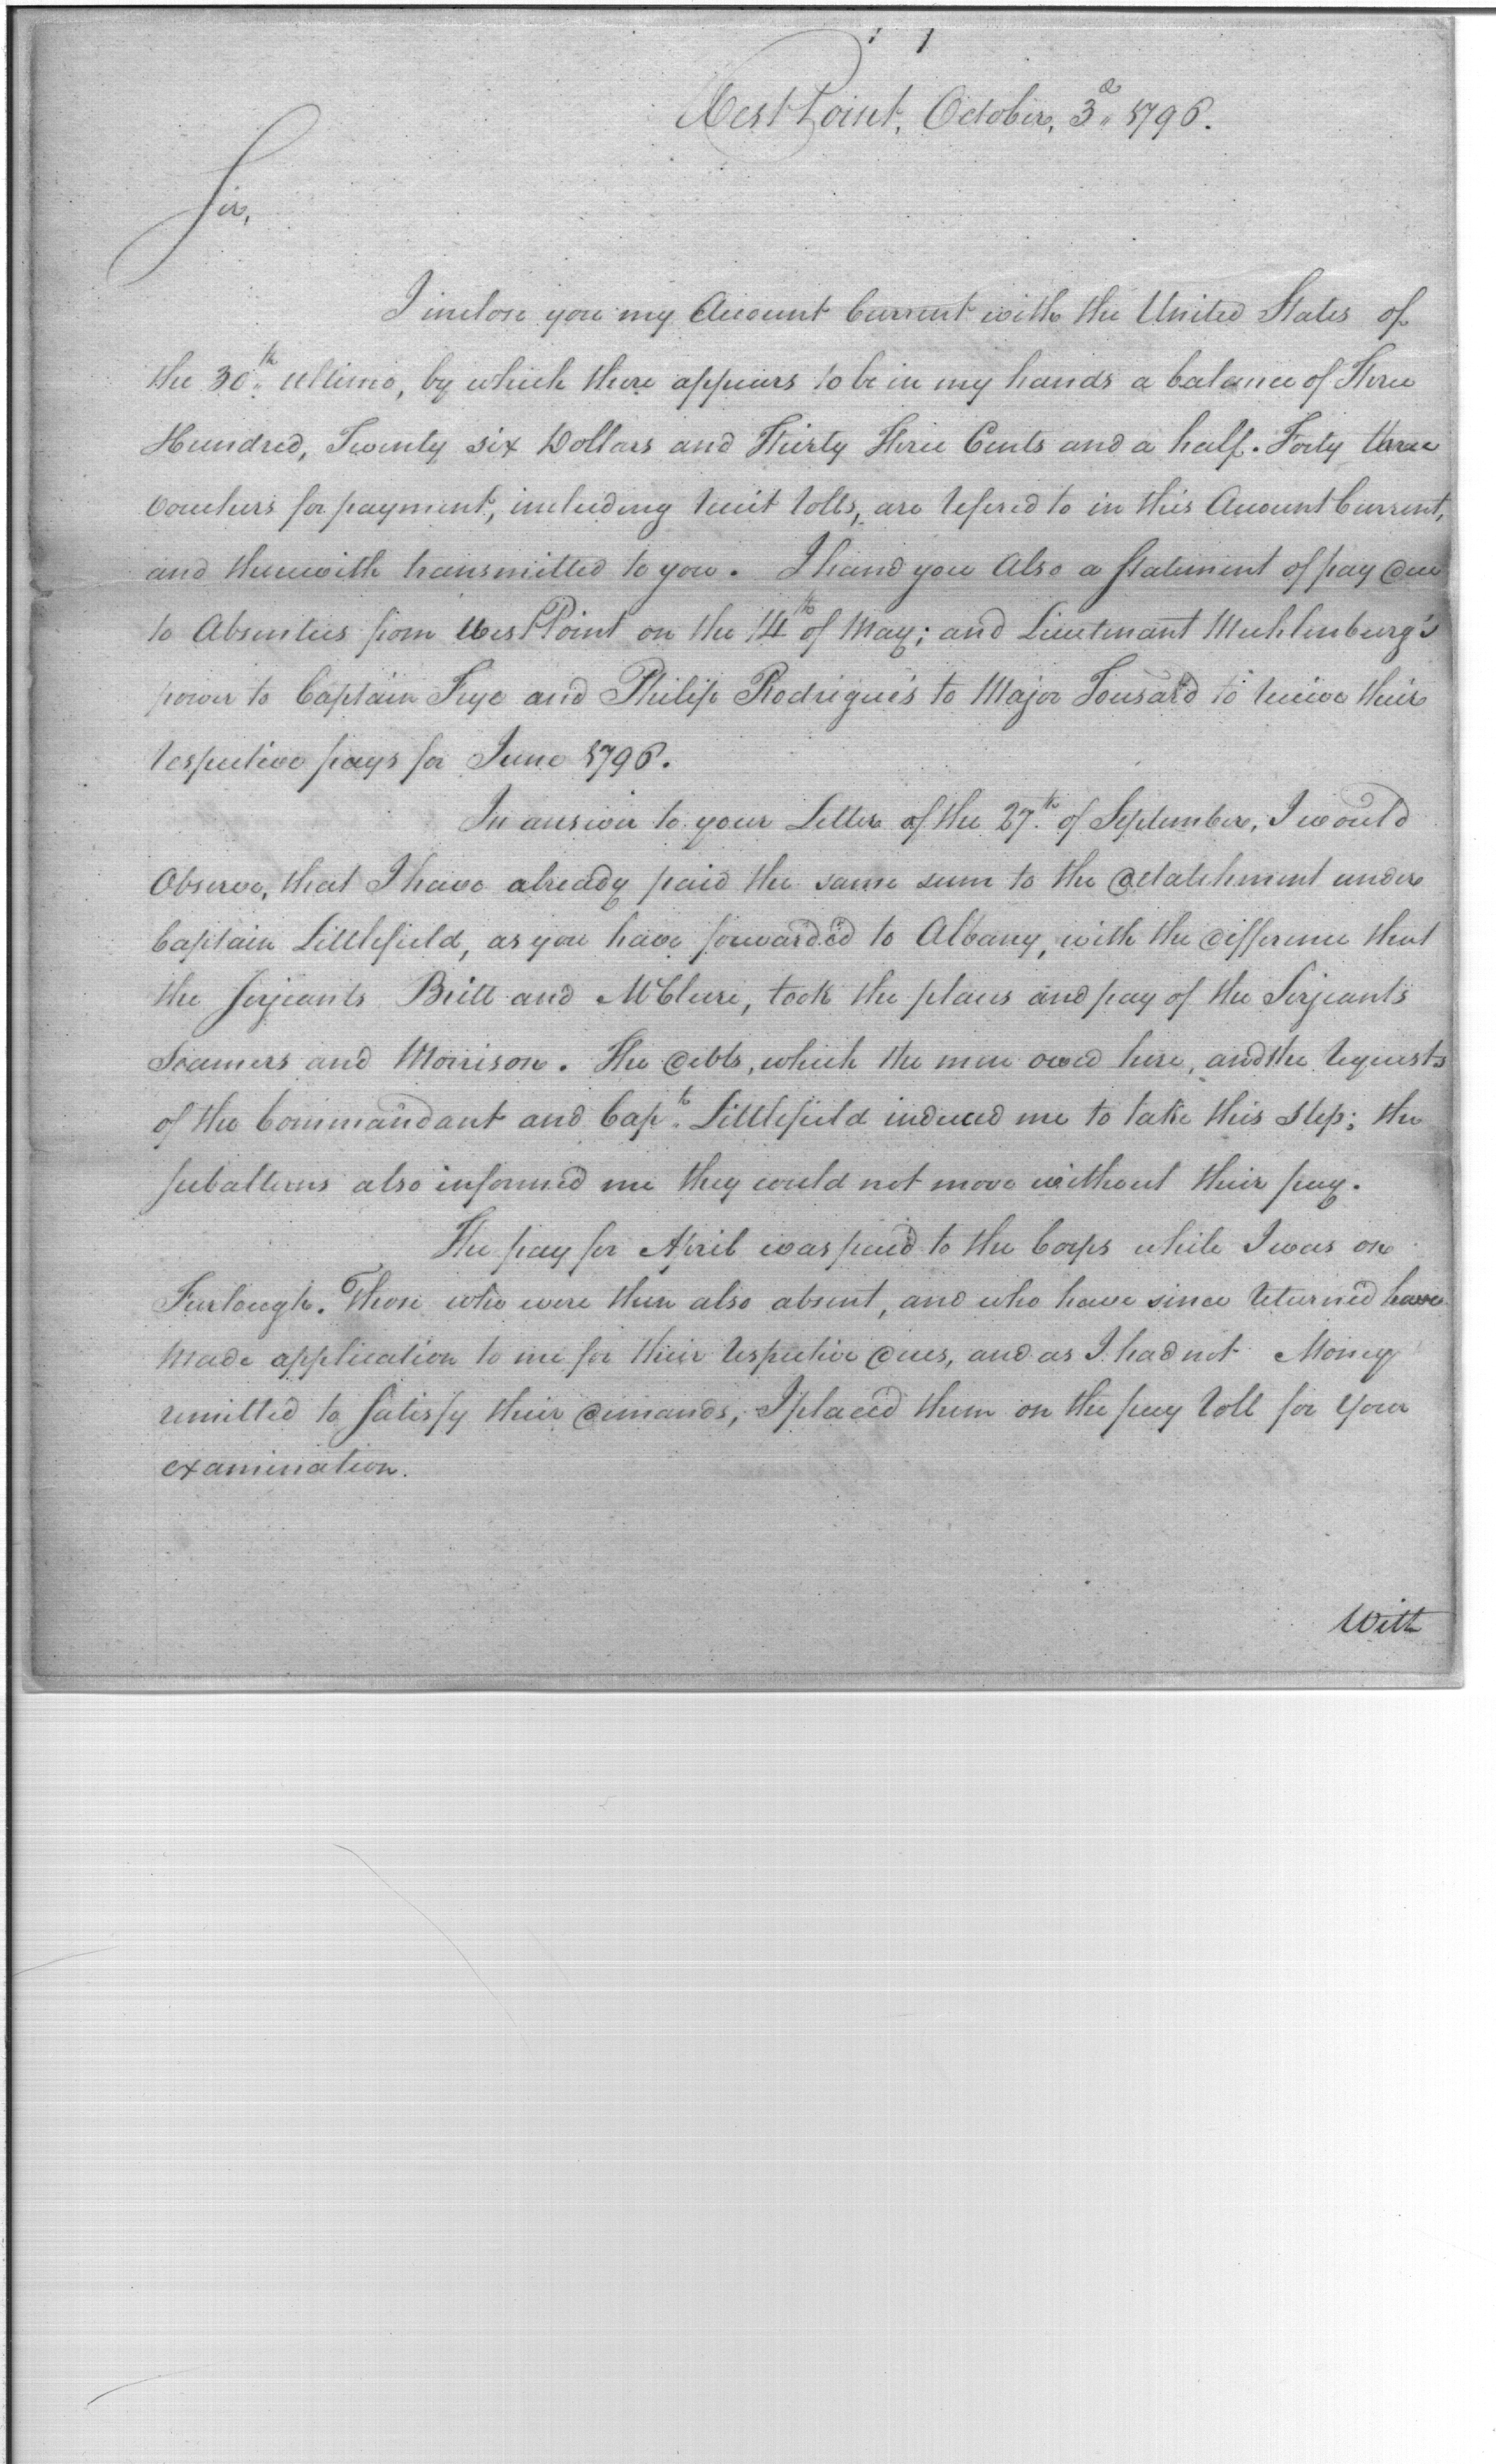 West Point, October, 3d 1796.
Sir,
I inclose you my Account Current with the United States of
the 30th ultimo, by which there appears to be in my hands a balance of Three
Hundred, Twenty six Dollars and Thirty Three Cents and a half. Forty three
vouchers for payment, including recit rolls, are refered to in this Account Current,
and therewith transmitted to you. I hand you also a Statement of pay due
to Absentees from West Point on the 14th of May; and Lieutenant Muhlenburg's
power to Captain Frye and Philip Rodrigue's to Major Tousard to receive their
respective pays for June 1796.
In answer to your Letter of the 27th of September, I would
Observe, that I have already paid the same sum to the detatchment under
Captain Littlefield, as you have forwarded to Albany, with the difference that
the Serjeants Britt and McClure, took the places and pay of the Serjeants
and Morrison. The debts, which the men owed here, and the requests
of the Commandant and Capt. Littlefield induced me to take this step; the
subalterns also informed me they could not move without their pay.
The pay for April was paid to the Corps while I was on
Furlough. Those who were then also absent, and who have since returned have
made application to me for their respective dues, and as I had not Money
remitted to satisfy their demands, I placed them on the pay roll for your
examination.
With